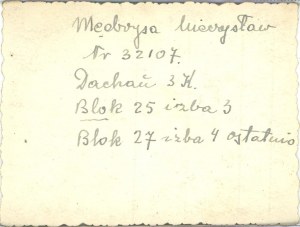 Mędrysa Mieczysław
Nr 32107.
Dachau 3 K.
Blok 25 izba 3
Blok 27 izba 4 ostatnio